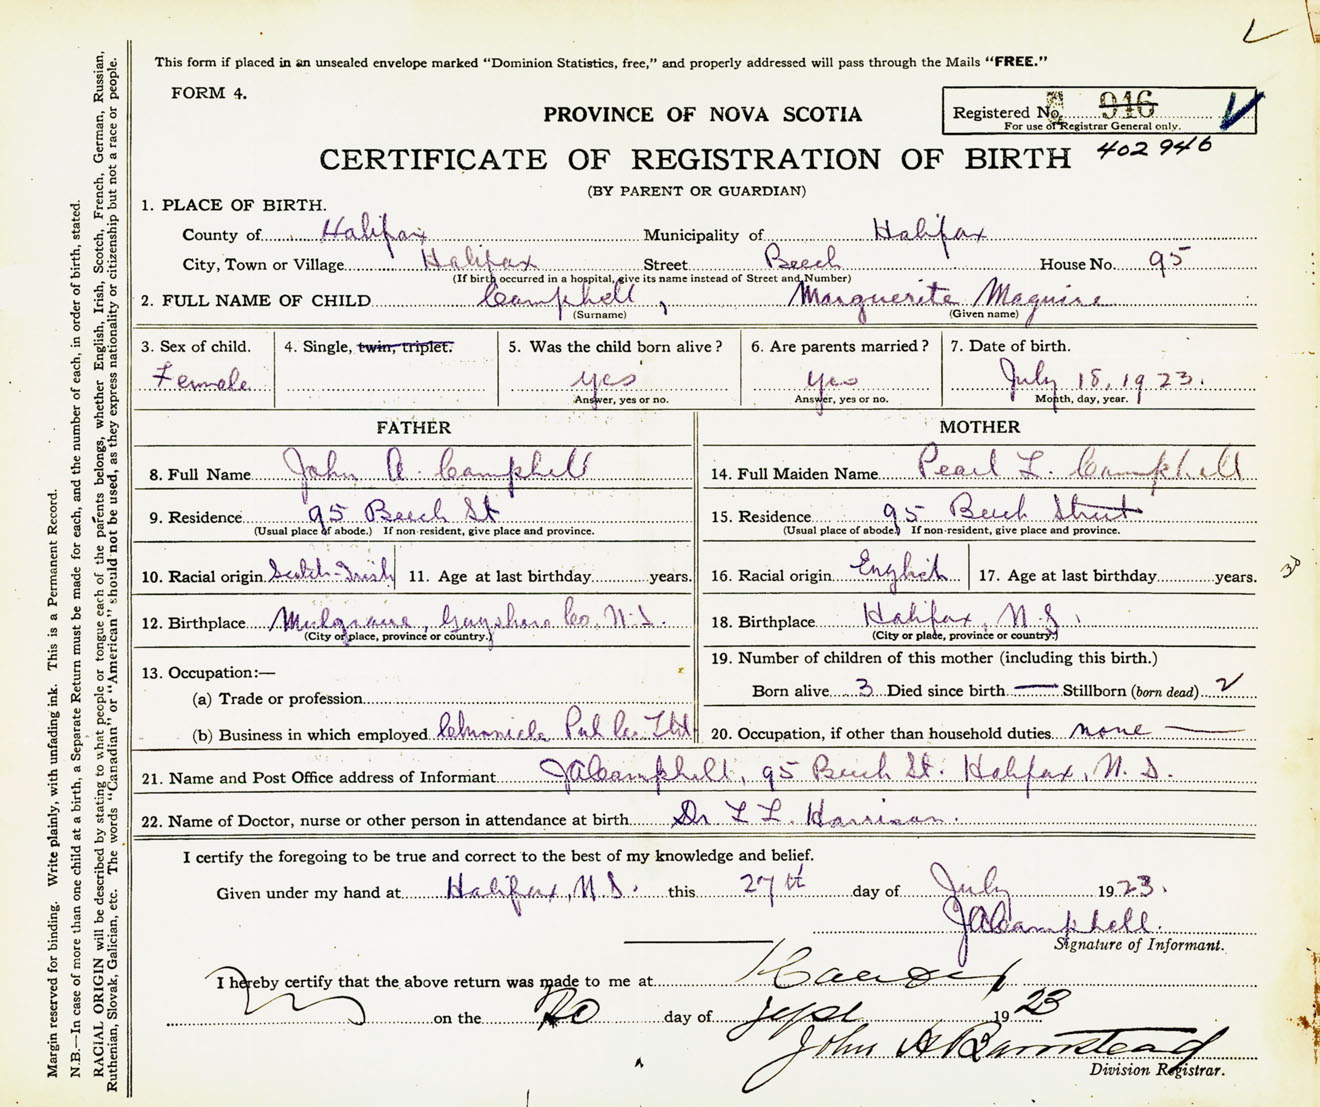 This form if placed in an unsealed envelope marked “Dominion Statistics, free,” and properly addressed will pass through the Mails “FREE.”
FORM 4.
PROVINCE OF NOVA SCOTIA
Registered No. 946
For use of Registrar General only.
CERTIFICATE OF REGISTRATION OF BIRTH 402 946
(BY PARENT OR GUARDIAN)
1. PLACE OF BIRTH.
County of Halifax Municipality of Halifax
City, Town or Village Halifax Street Beech House No. 95
(If birth occurred in a hospital, give its name instead of Street and Number)
2. FULL NAME OF CHILD Campbell, Marguerite Maguire
(Surname) (Given name)
3. Sex of child. 4. Single, twin, triplet. 5. Was the child born alive? 6. Are parents married? 7. Date of birth.
Female yes yes July 18, 1923.
Answer, yes or no. Answer, yes or no. Month, day, year.
FATHER MOTHER
8. Full Name John A. Campbell 14. Full Maiden Name Pearl L. Campbell
9. Residence 95 Beech St 15. Residence 95 Beech Street
(Usual place of abode.) If non-resident, give place and province. (Usual place of abode.) If non-resident, give place and province.
10. Racial origin Scotch-Irish 11. Age at last birthday years. 16. Racial origin English 17. Age at last birthday years.
12. Birthplace Mulgrave, Guysboro Co. N.S. 18. Birthplace Halifax, N.S.
(City or place, province or country.) (City or place, province or country.)
13. Occupation:— 19. Number of children of this mother (including this birth.)
(a) Trade or profession Born alive 3 Died since birth — Stillborn (born dead)
(b) Business in which employed Chronicle Pub Co. Ltd 20. Occupation, if other than household duties none —
21. Name and Post Office address of Informant JACampbell, 95 Beech St. Halifax, N.S.
22. Name of Doctor, nurse or other person in attendance at birth Dr L L Harrison.
I certify the foregoing to be true and correct to the best of my knowledge and belief.
Given under my hand at Halifax, N.S. this 27th day of July 1923.
JACampbell.
Signature of Informant.
I hereby certify that the above return was made to me at
on the 20 day of Sept 1923
John A Barnstead
Division Registrar.
Margin reserved for binding. Write plainly, with unfading ink. This is a Permanent Record.
N.B.—In case of more than one child at a birth, a Separate Return must be made for each, and the number of each, in order of birth, stated.
RACIAL ORIGIN will be described by stating to what people or tongue each of the parents belongs, whether English, Irish, Scotch, French, German, Russian,
Ruthenian, Slovak, Galician, etc. The words “Canadian” or “American” should not be used, as they express nationality or citizenship but not a race or people.
30